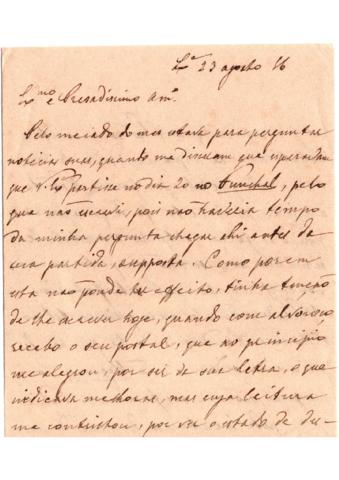 Lxª 23 agosto 16
Exmo e Presadissimo Amº.
Pelo meiado do mez estava para perguntar
noticias suas, quando me disseram que esperavam
que V. Exª partisse no dia 20 no Funchal, pelo
que não escrevi, pois não haveria tempo
da minha pergunta chegar ahi antes da
sua partida, supposta. Como porem
esta não poude ter effeito, tinha tenção
de lhe escrever hoje, quando com alvoroço
recebo o seu postal, que no principio
me alegrou, por ser da sua letra, o que
indicava melhoras, mas cuja leitura
me contristou, por ver o estado de des-